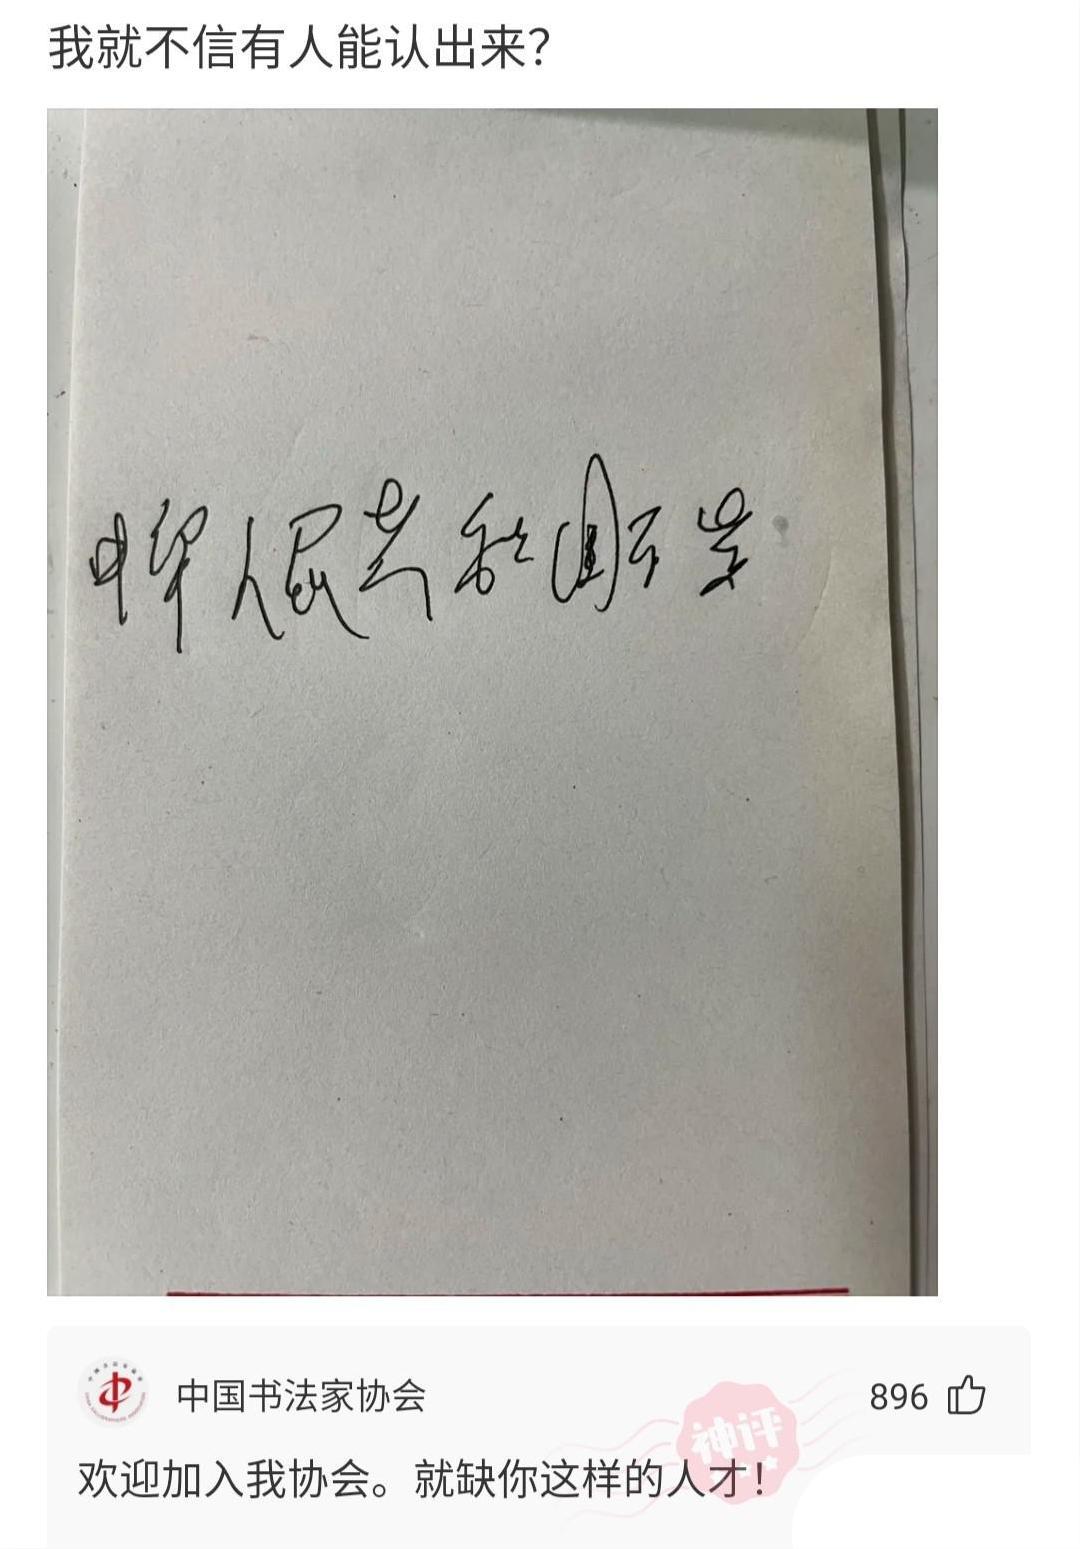 我就不信有人能认出来？
中华人民共和国万岁
中国书法家协会
896
神评
欢迎加入我协会。就缺你这样的人才！